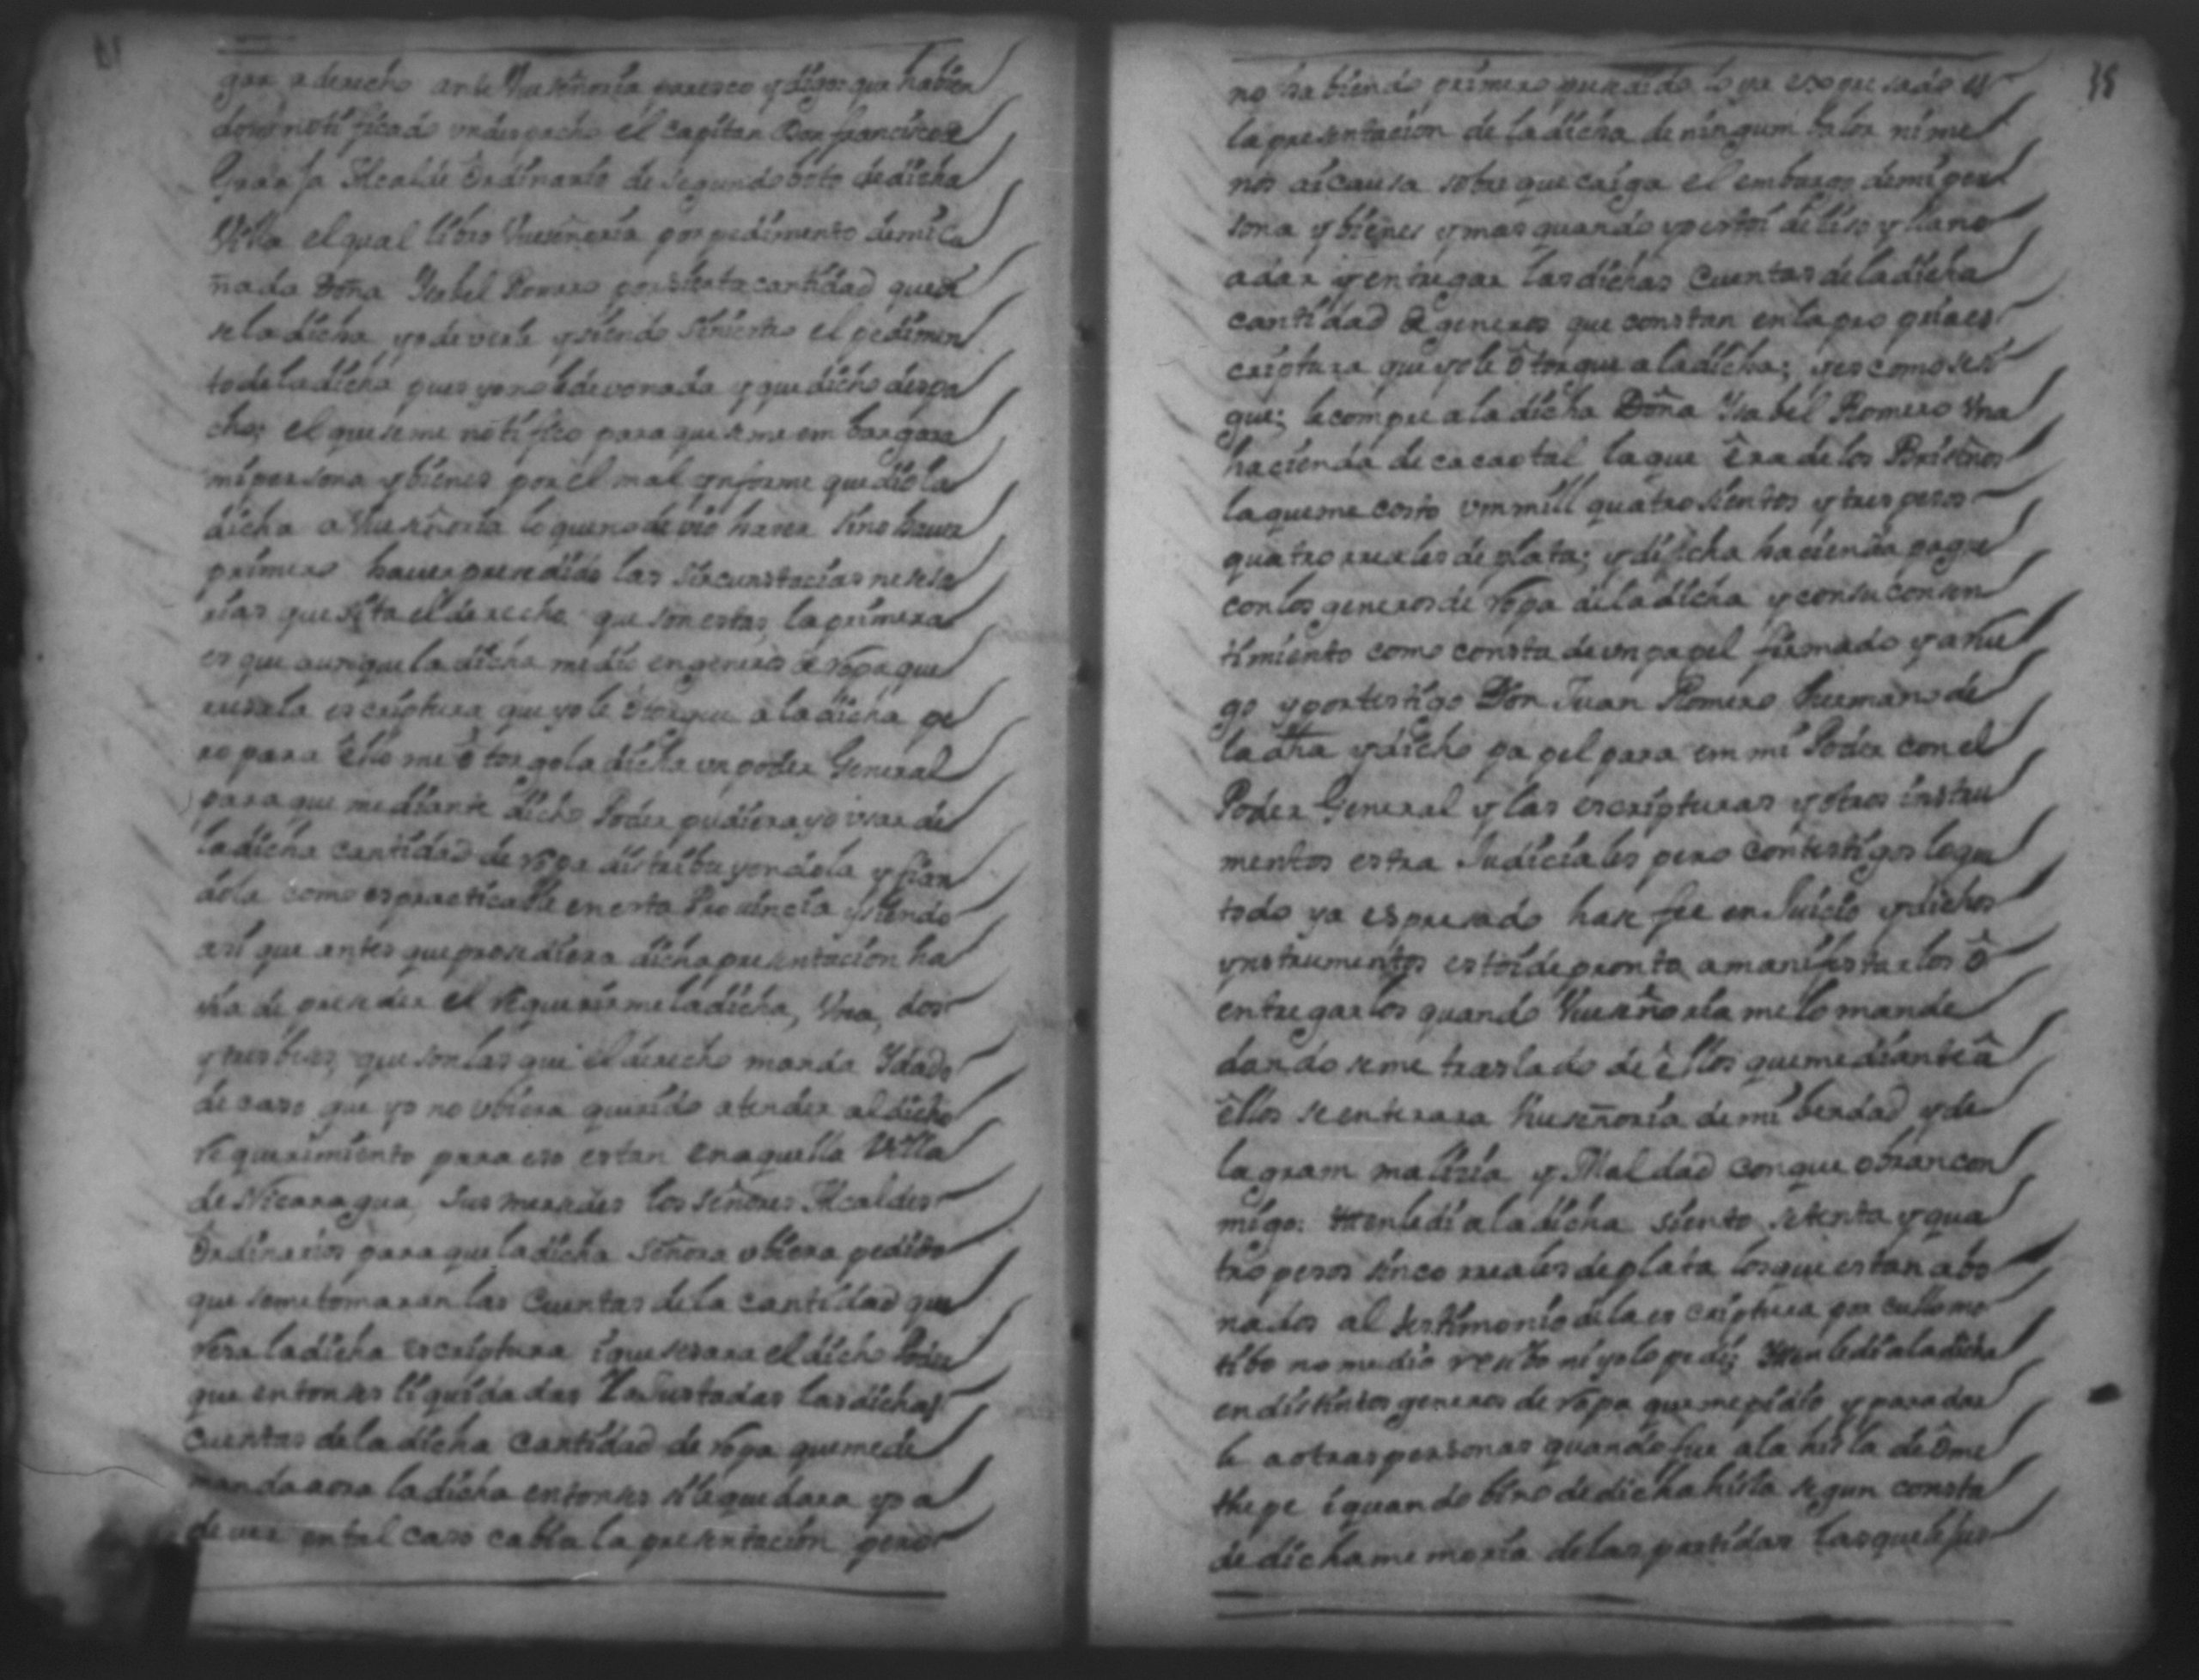 gar a derecho ante Vueseñoria paresco y digo que habien
dome notificado un despacho el Capitan Don Francisco
Granja Alcalde Ordinario de segundo boto de dicha
Villa el qual libro Vueseñoria por pedimento de mi Cu
ñada Doña Ysabel Romero por sierta cantidad que
se la dicha yo deverle y siendo siniestro el pedimen
to de la dicha pues yo no le devo nada y que dicho despa
cho; el que se me notifico para que se me embargara
mi persona y bienes por el mal ynforme que dio la
dicha a Vueseñoria lo que no devio haser sino haver
primero haver presedido las sircunstacias nesesa
rias que sita el derecho que son estas, la primera
es que aunque la dicha me dio en generos de ropa que
resa la escriptura que yo le otorgue a la dicha pe
ro para ello me otorgo la dicha un poder General
para que mediante dicho Poder pudiera yo usar de
la dicha cantidad de ropa distribuyendola y fian
dola como es practicable en esta Provincia y siendo
asi que antes que prosediera dicha presentacion ha
via de preseder el requerirme la dicha, Una, dos
y tres beses, que son las que el derecho manda Y dado
de caso que yo no ubiera querido atender al dicho
requerimiento para eso estan en aquella Villa
de Nicaragua, sus mersedes los señores Alcaldes
Ordinarios para que la dicha señora ubiera pedido
que se me tomaran las Cuentas de la cantidad que
resa la dicha escriptura i que sesara el dicho Poder
que entonses liquidadas Y ajustadas las dichas
Cuentas de la dicha Cantidad de ropa que me de
manda aora la dicha entonses si le quedara yo a
dever en tal caso cabia la presentacion pero
38
no habiendo primero presedido lo ya expresado es
la presentacion de la dicha de ningun balor ni me
nos ai causa sobre que caiga el embargo de mi per
sona y bienes y mas quando yo estoi de liso y llano
a dar y entregar las dichas Cuentas de la dicha
cantidad de generos que constan en la propia es
criptura que yo le otorgue a la dicha; y es como se si
gue; le compre a la dicha Doña Ysabel Romero Una
hacienda de cacaotal la que era de los Briseños
la que me costo un mill quatrosientos y tres pesos
quatro rreales de plata; y dicha hacienda pague
con los generos de ropa de la dicha y con su consen
timiento como consta de un papel firmado y a rue
go y por testigo Don Juan Romero hermano de
la dha y dicho papel para em mi Poder con el
Poder General y las escripturas y otros instru
mentos estra Judiciales pero con testigos lo que
todo ya espresado hase fee en Juicio y dichos
ynstrumentos estoi de pronto a manifestarlos o
entregarlos quando Vueseñoria me lo mande
dandoseme traslado de ellos que mediante a
ellos se enterara Vueseñoria de mi berdad y de
la gram malizia y Maldad con que obran con
migo. Iten le di a la dicha siento setenta y qua
tro pesos sinco rreales de plata los que estan abo
nados al testimonio de la escriptura por cullo mo
tibo no me dio resibo ni yo lo pedi; Iten le di a la dicha
en distintos generos de ropa que me pidio y para dar
le a otras personas quando fue a la hisla de Ome
thepe i quando bino de dicha hisla segun consta
de dicha memoria de las partidas las que le fue